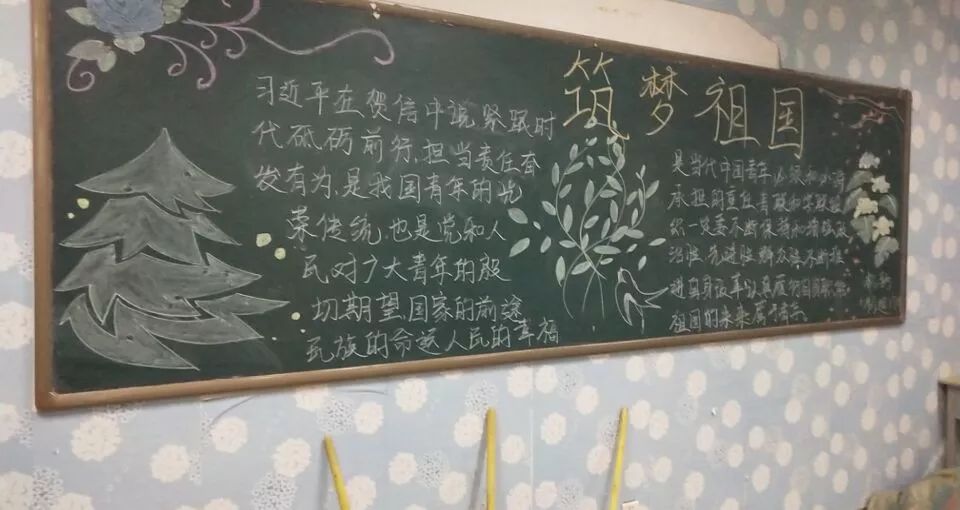 筑梦祖国
习近平在贺信中说紧跟时
代砥砺前行,担当责任奋
发有为,是我国青年的光
荣传统,也是党和人
民对广大青年的殷
切期望,国家的前途
民族的命运人民的幸福
是当代中国青年必须和
承担的重任青联和学联组
织一定要不断保持和增强政
治性先进性群众性不断推
进自身改革
祖国的未来属